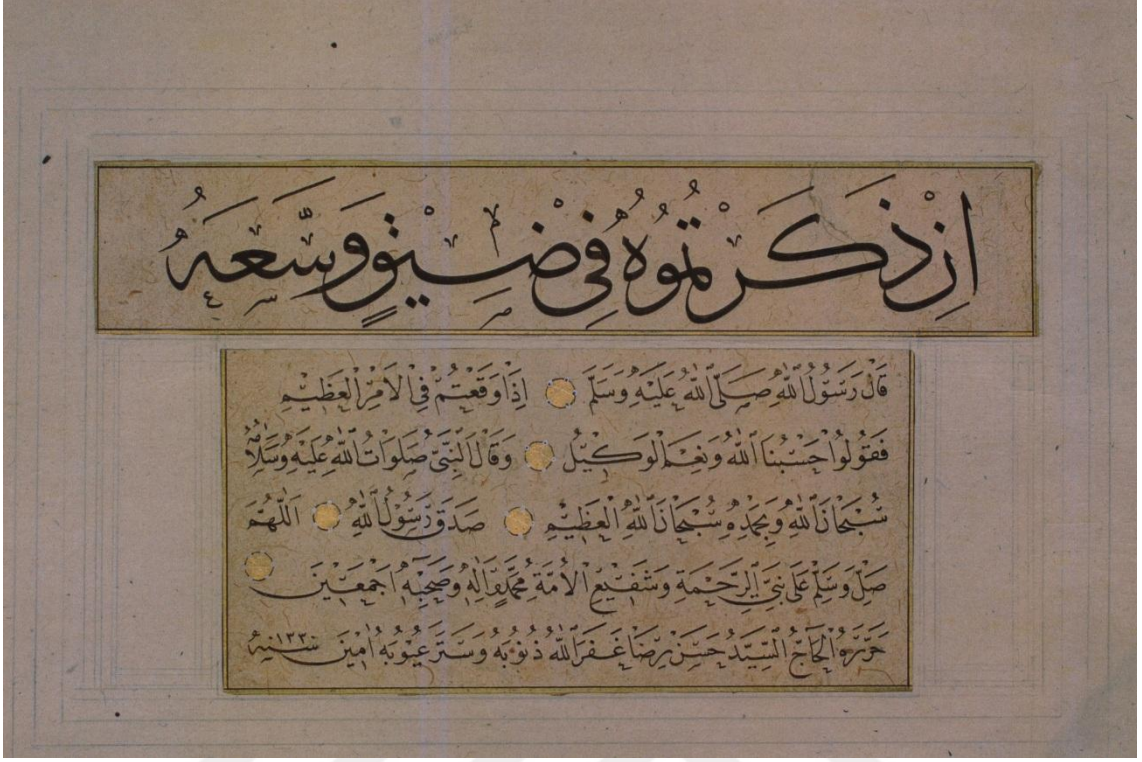 اِنْ ذَكَرْتُمُوهُ فِي ضِيْقٍ وَسَّعَهُ
قَالَ رَسُولُ اللّٰهِ صَلَّى اللّٰهُ عَلَيْهِ وَسَلَّمَ اِذَا وَقَعْتُمْ فِي الْاَمْرِ الْعَظِيْمِ
فَقُولُوا حَسْبُنَا اللّٰهُ وَنِعْمَ الْوَكِيْلُ وَقَالَ النَّبِيُّ صَلَوَاتُ اللّٰهِ عَلَيْهِ وَسَلَامُهُ
سُبْحَانَ اللّٰهِ وَبِحَمْدِهِ سُبْحَانَ اللّٰهِ الْعَظِيْمِ صَدَقَ رَسُولُ اللّٰهِ اَللّٰهُمَّ
صَلِّ وَسَلِّمْ عَلٰى نَبِيِّ الرَّحْمَةِ وَشَفِيْعِ الْاُمَّةِ مُحَمَّدٍ وَاٰلِهِ وَصَحْبِهِ اَجْمَعِيْنَ
حَرَّرَهُ الْحَاجُّ السَّيِّدُ حَسَنْ رِضَا غَفَرَ اللّٰهُ ذُنُوبَهُ وَسَتَرَ عُيُوبَهُ اٰمِيْنَ سَنَة